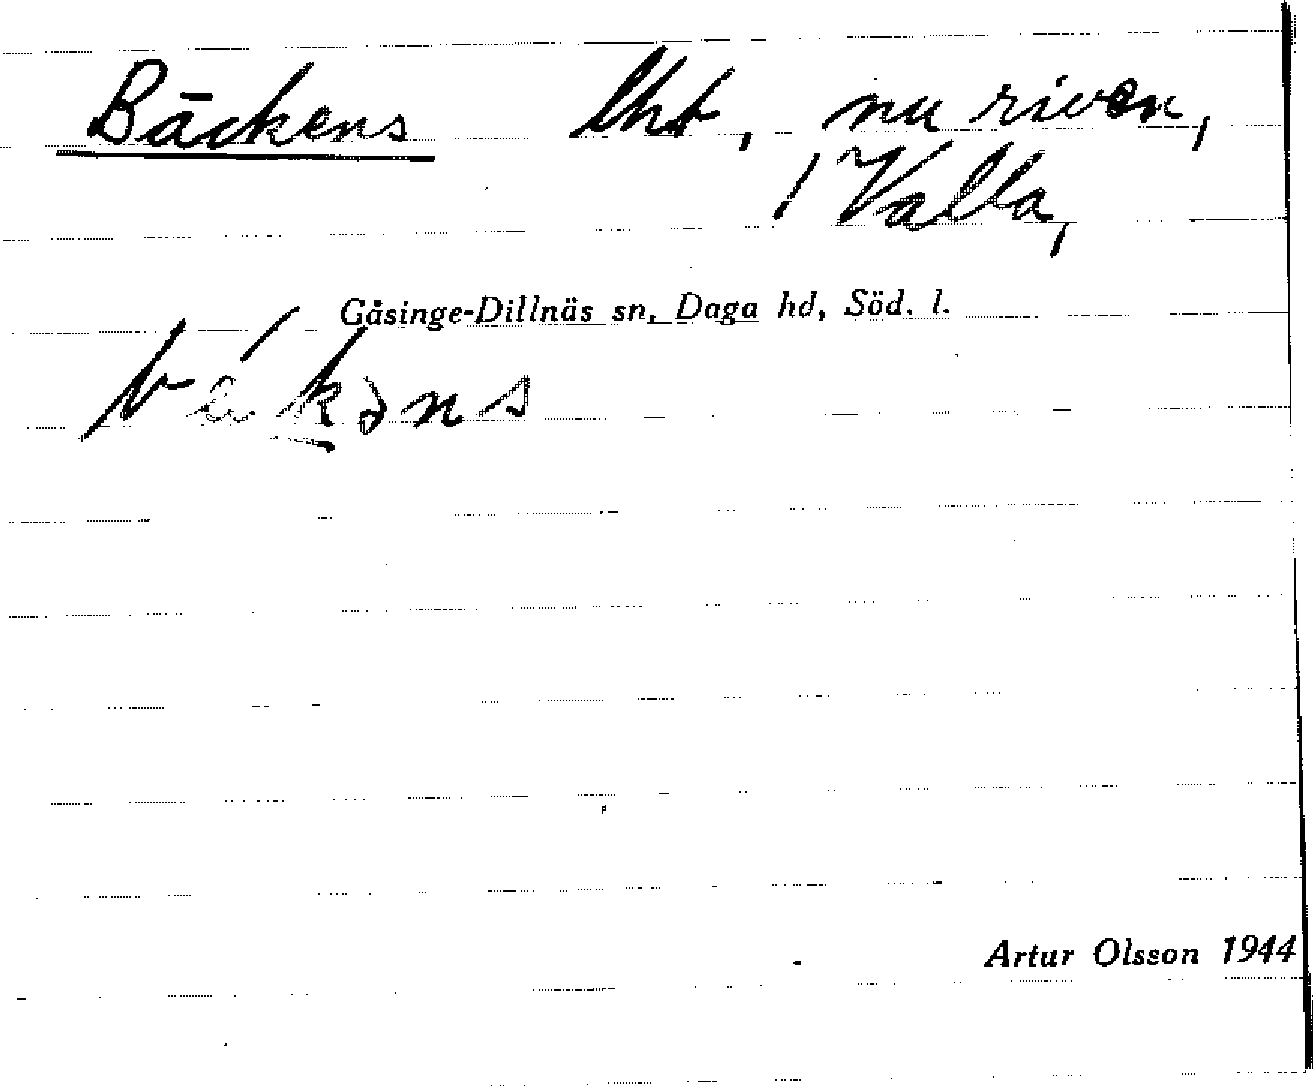 Bäckens lht, nu riven,
/ Valla,
Gåsinge-Dillnäs sn, Daga hd, Söd. l.
Artur Olsson 1944